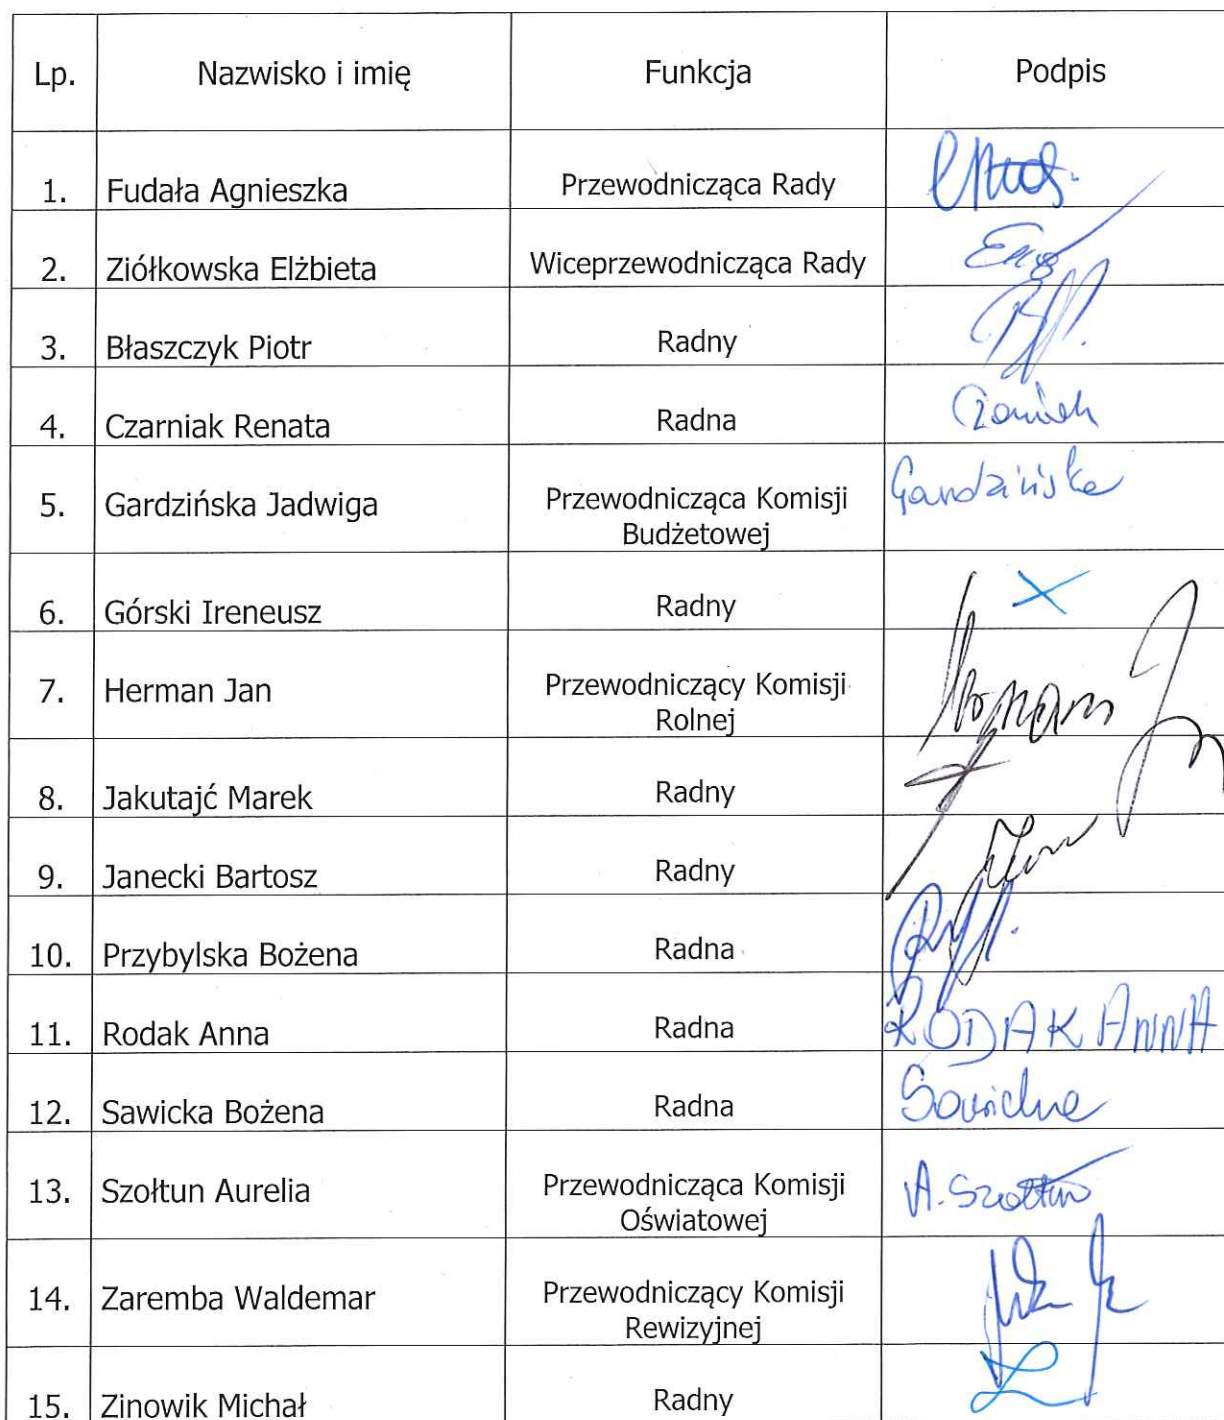 Lp. Nazwisko i imię Funkcja Podpis
1. Fudała Agnieszka Przewodnicząca Rady
2. Ziółkowska Elżbieta Wiceprzewodnicząca Rady
3. Błaszczyk Piotr Radny
4. Czarniak Renata Radna
5. Gardzińska Jadwiga Przewodnicząca Komisji Gardzińska
Budżetowej
6. Górski Ireneusz Radny
7. Herman Jan Przewodniczący Komisji
Rolnej
8. Jakutajć Marek Radny
9. Janecki Bartosz Radny
10. Przybylska Bożena Radna
11. Rodak Anna Radna RODAK ANNA
12. Sawicka Bożena Radna
13. Szołtun Aurelia Przewodnicząca Komisji A. Szołtun
Oświatowej
14. Zaremba Waldemar Przewodniczący Komisji
Rewizyjnej
15. Zinowik Michał Radny